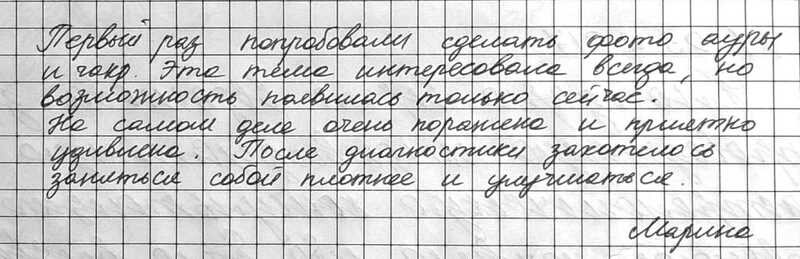 Первый раз попробовали сделать фото ауры
и чакр. Эта тема интересовала всегда, но
возможность появилась только сейчас.
На самом деле очень поражена и приятно
удивлена. После диагностики захотелось
заняться собой плотнее и улучшаться.
Марина